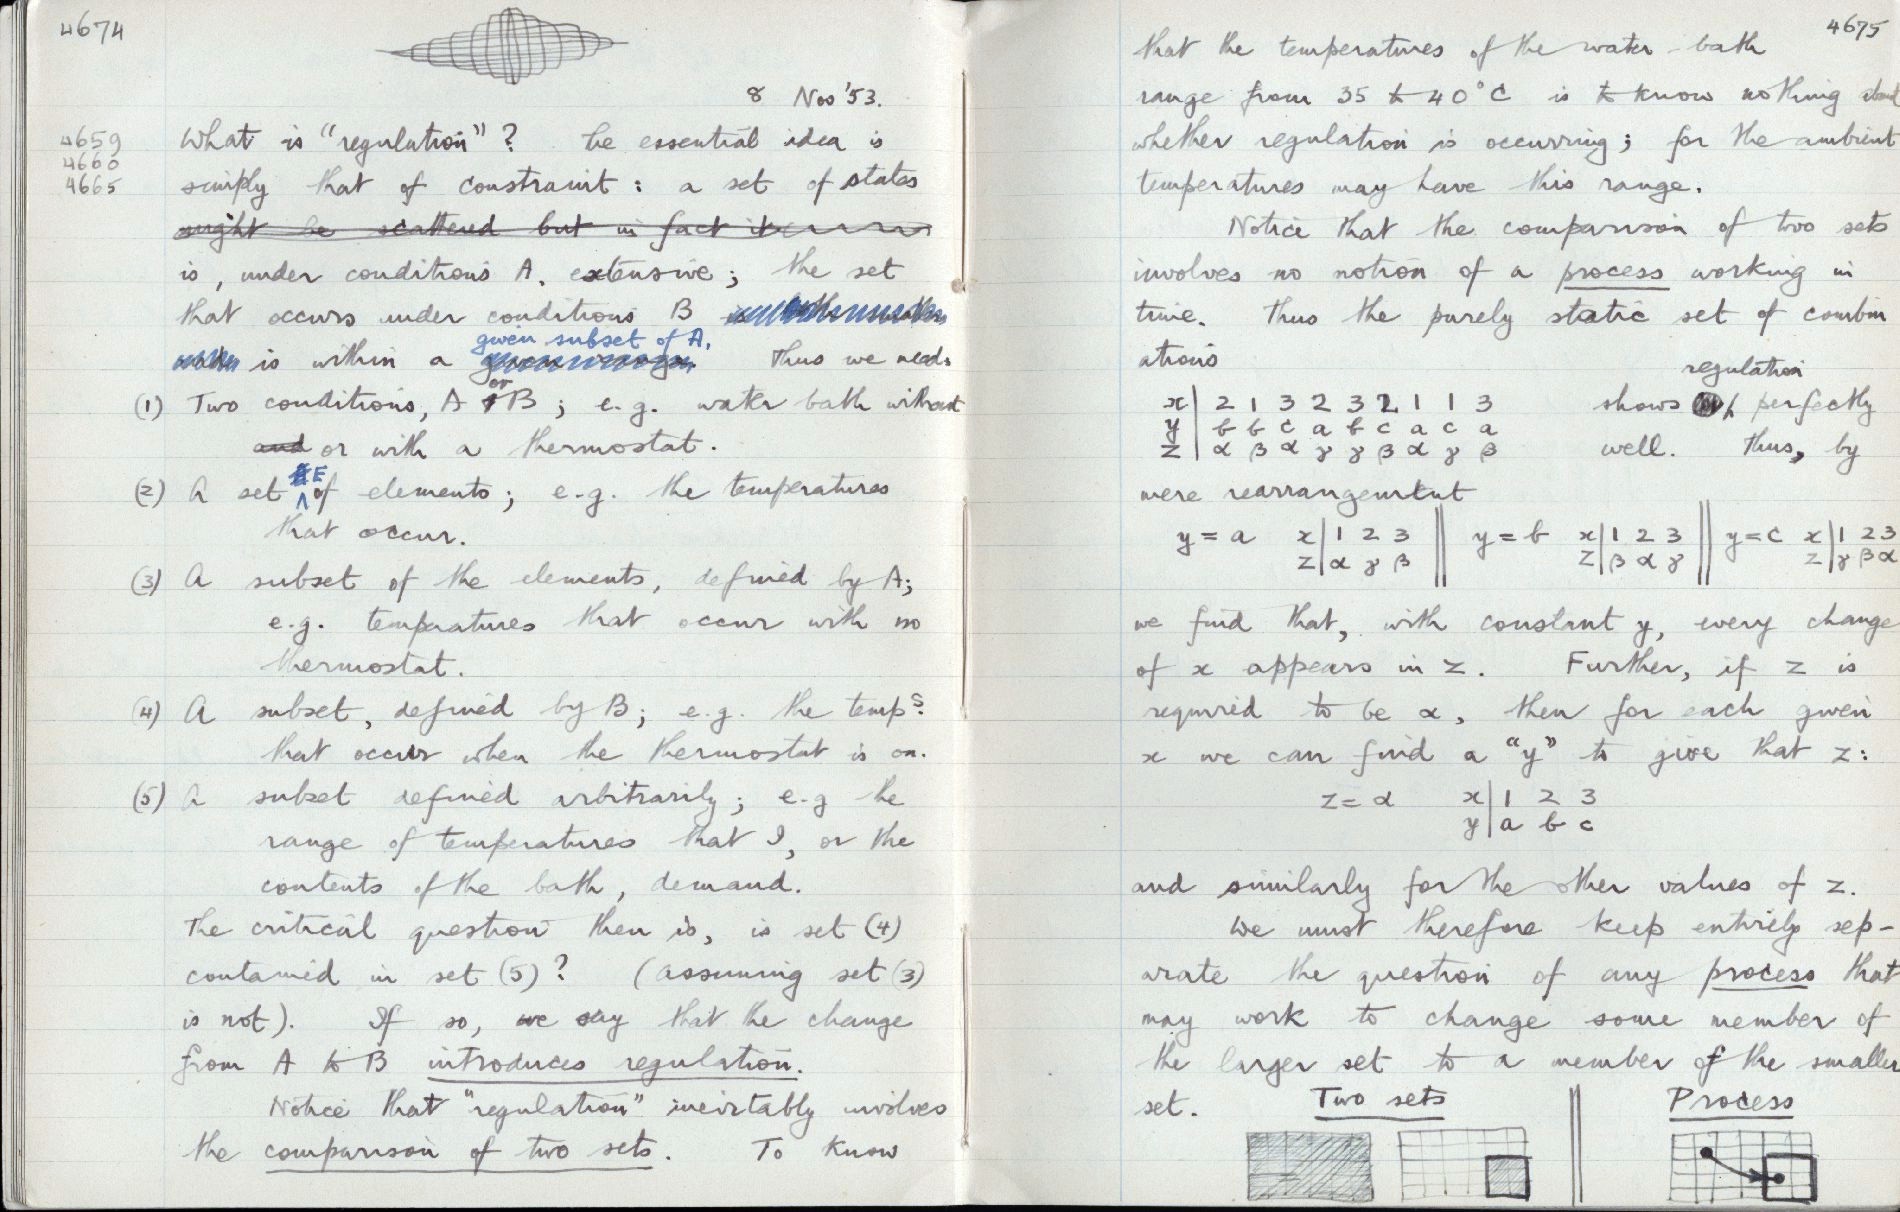 4674
8 Nov '53.
4659
4660
4665
What is "regulation"? The essential idea is
simply that of constraint: a set of states
might be scattered but in fact it
is, under conditions A, extensive; the set
that occurs under conditions B
given subset of A.
is within a Thus we need:
(1) Two conditions, A or B; e.g. water bath without
and or with a thermostat.
(2) A set E of elements; e.g. the temperatures
that occur.
(3) A subset of the elements, defined by A;
e.g. temperatures that occur with no
thermostat.
(4) A subset, defined by B; e.g. the temps.
that occur when the thermostat is on.
(5) A subset defined arbitrarily; e.g the
range of temperatures that I, or the
contents of the bath, demand.
The critical question then is, is set (4)
contained in set (5)? (assuming set (3)
is not). If so, we say that the change
from A to B introduces regulation.
Notice that "regulation" inevitably involves
the comparison of two sets. To know
4675
that the temperatures of the water-bath
range from 35 to 40°C is to know nothing about
whether regulation is occurring; for the ambient
temperatures may have this range.
Notice that the comparison of two sets
involves no notion of a process working in
time. Thus the purely static set of combin
ations
regulation
x | 2 1 3 2 3 2 1 1 3 shows perfectly
y | b b c a b c a c a
z | α β α γ γ β α γ β well. Thus, by
mere rearrangement
y = a x | 1 2 3 || y = b x | 1 2 3 || y = c x | 1 2 3
z | α γ β z | β α γ z | γ β α
we find that, with constant y, every change
of x appears in z. Further, if z is
required to be α, then for each given
x we can find a "y" to give that z:
z = α x | 1 2 3
y | a b c
and similarly for the other values of z.
We must therefore keep entirely sep-
arate the question of any process that
may work to change some member of
the larger set to a member of the smaller
set. Two sets || Process